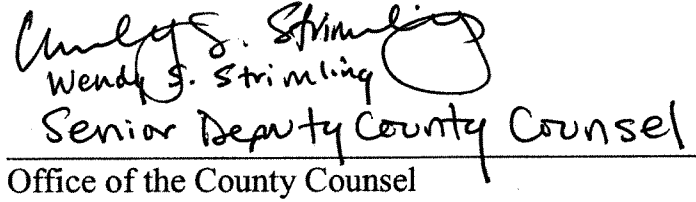 Wendy S. Strimling
Wendy S. Strimling
Senior Deputy County Counsel
Office of the County Counsel